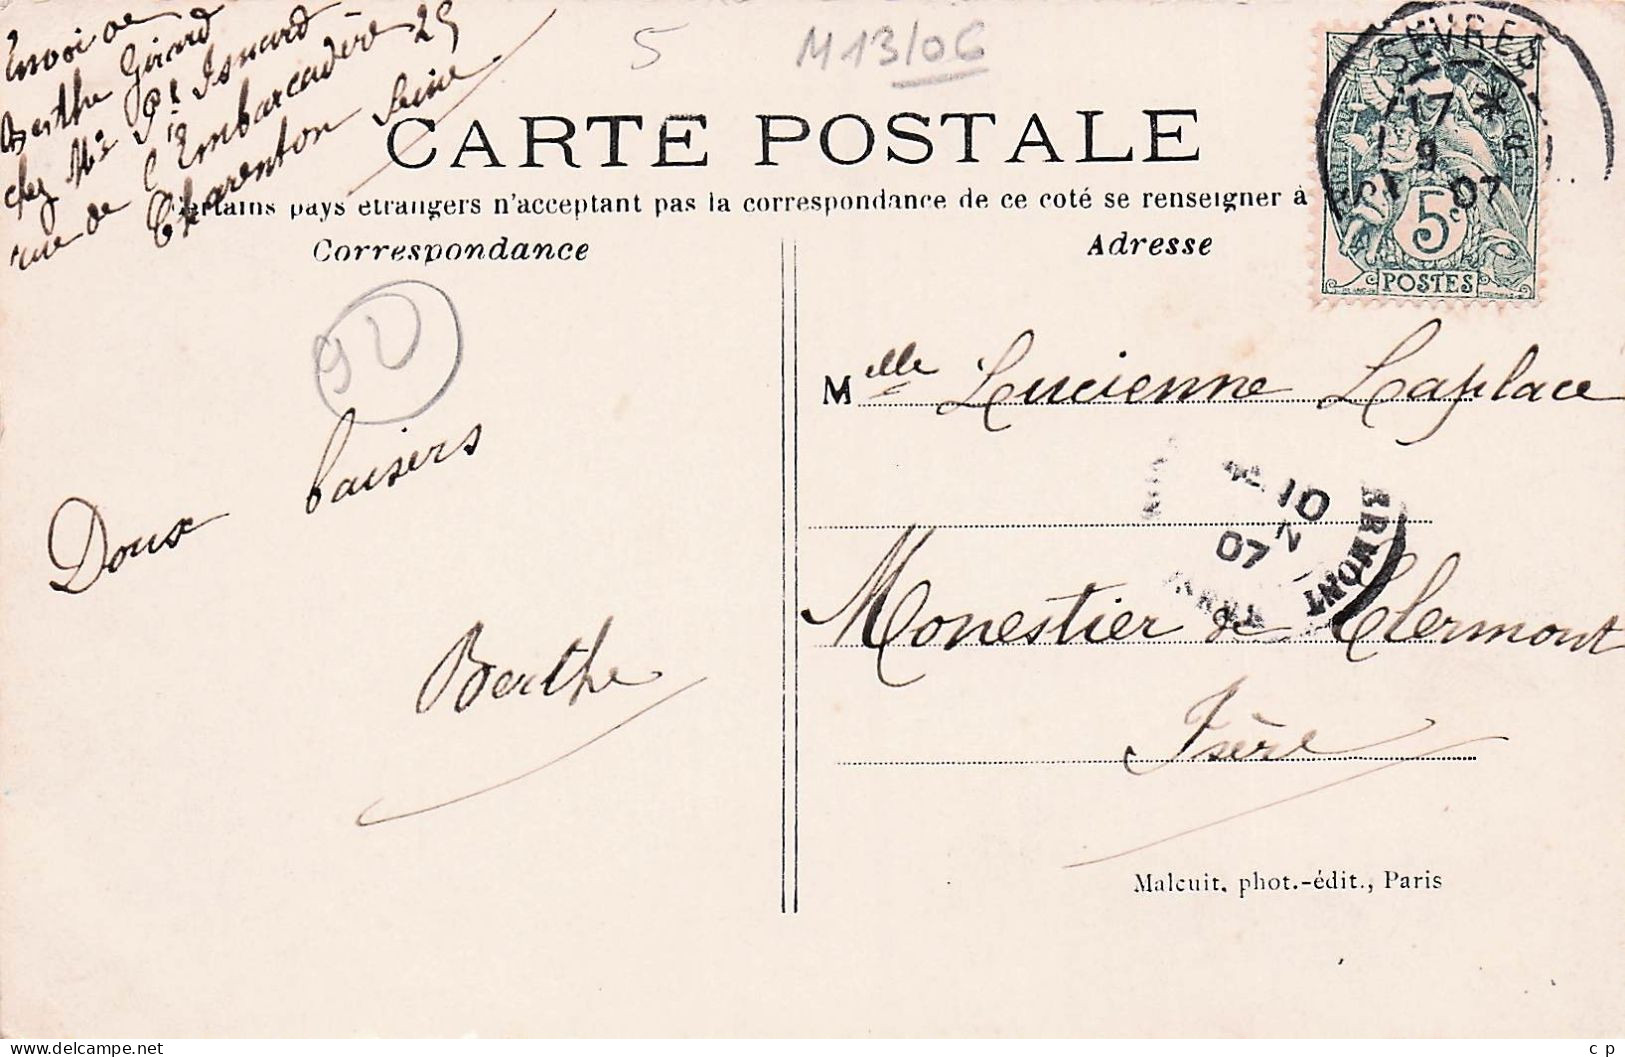 Envoi de
Berthe Girard
chez Mr Pre Ismard
rue de l'Embarcadère 25
Charenton Seine
5
M13/06
CARTE POSTALE
Certains pays étrangers n'acceptant pas la correspondance de ce coté se renseigner à
Correspondance
Adresse
SEVRES
17 *
9
07
5c
POSTES
92
Melle Lucienne Laplace
10
07
ERMONT
Doux baisers
Monestier de Clermont
Berthe
Isère
Malcuit, phot.-édit., Paris
c p